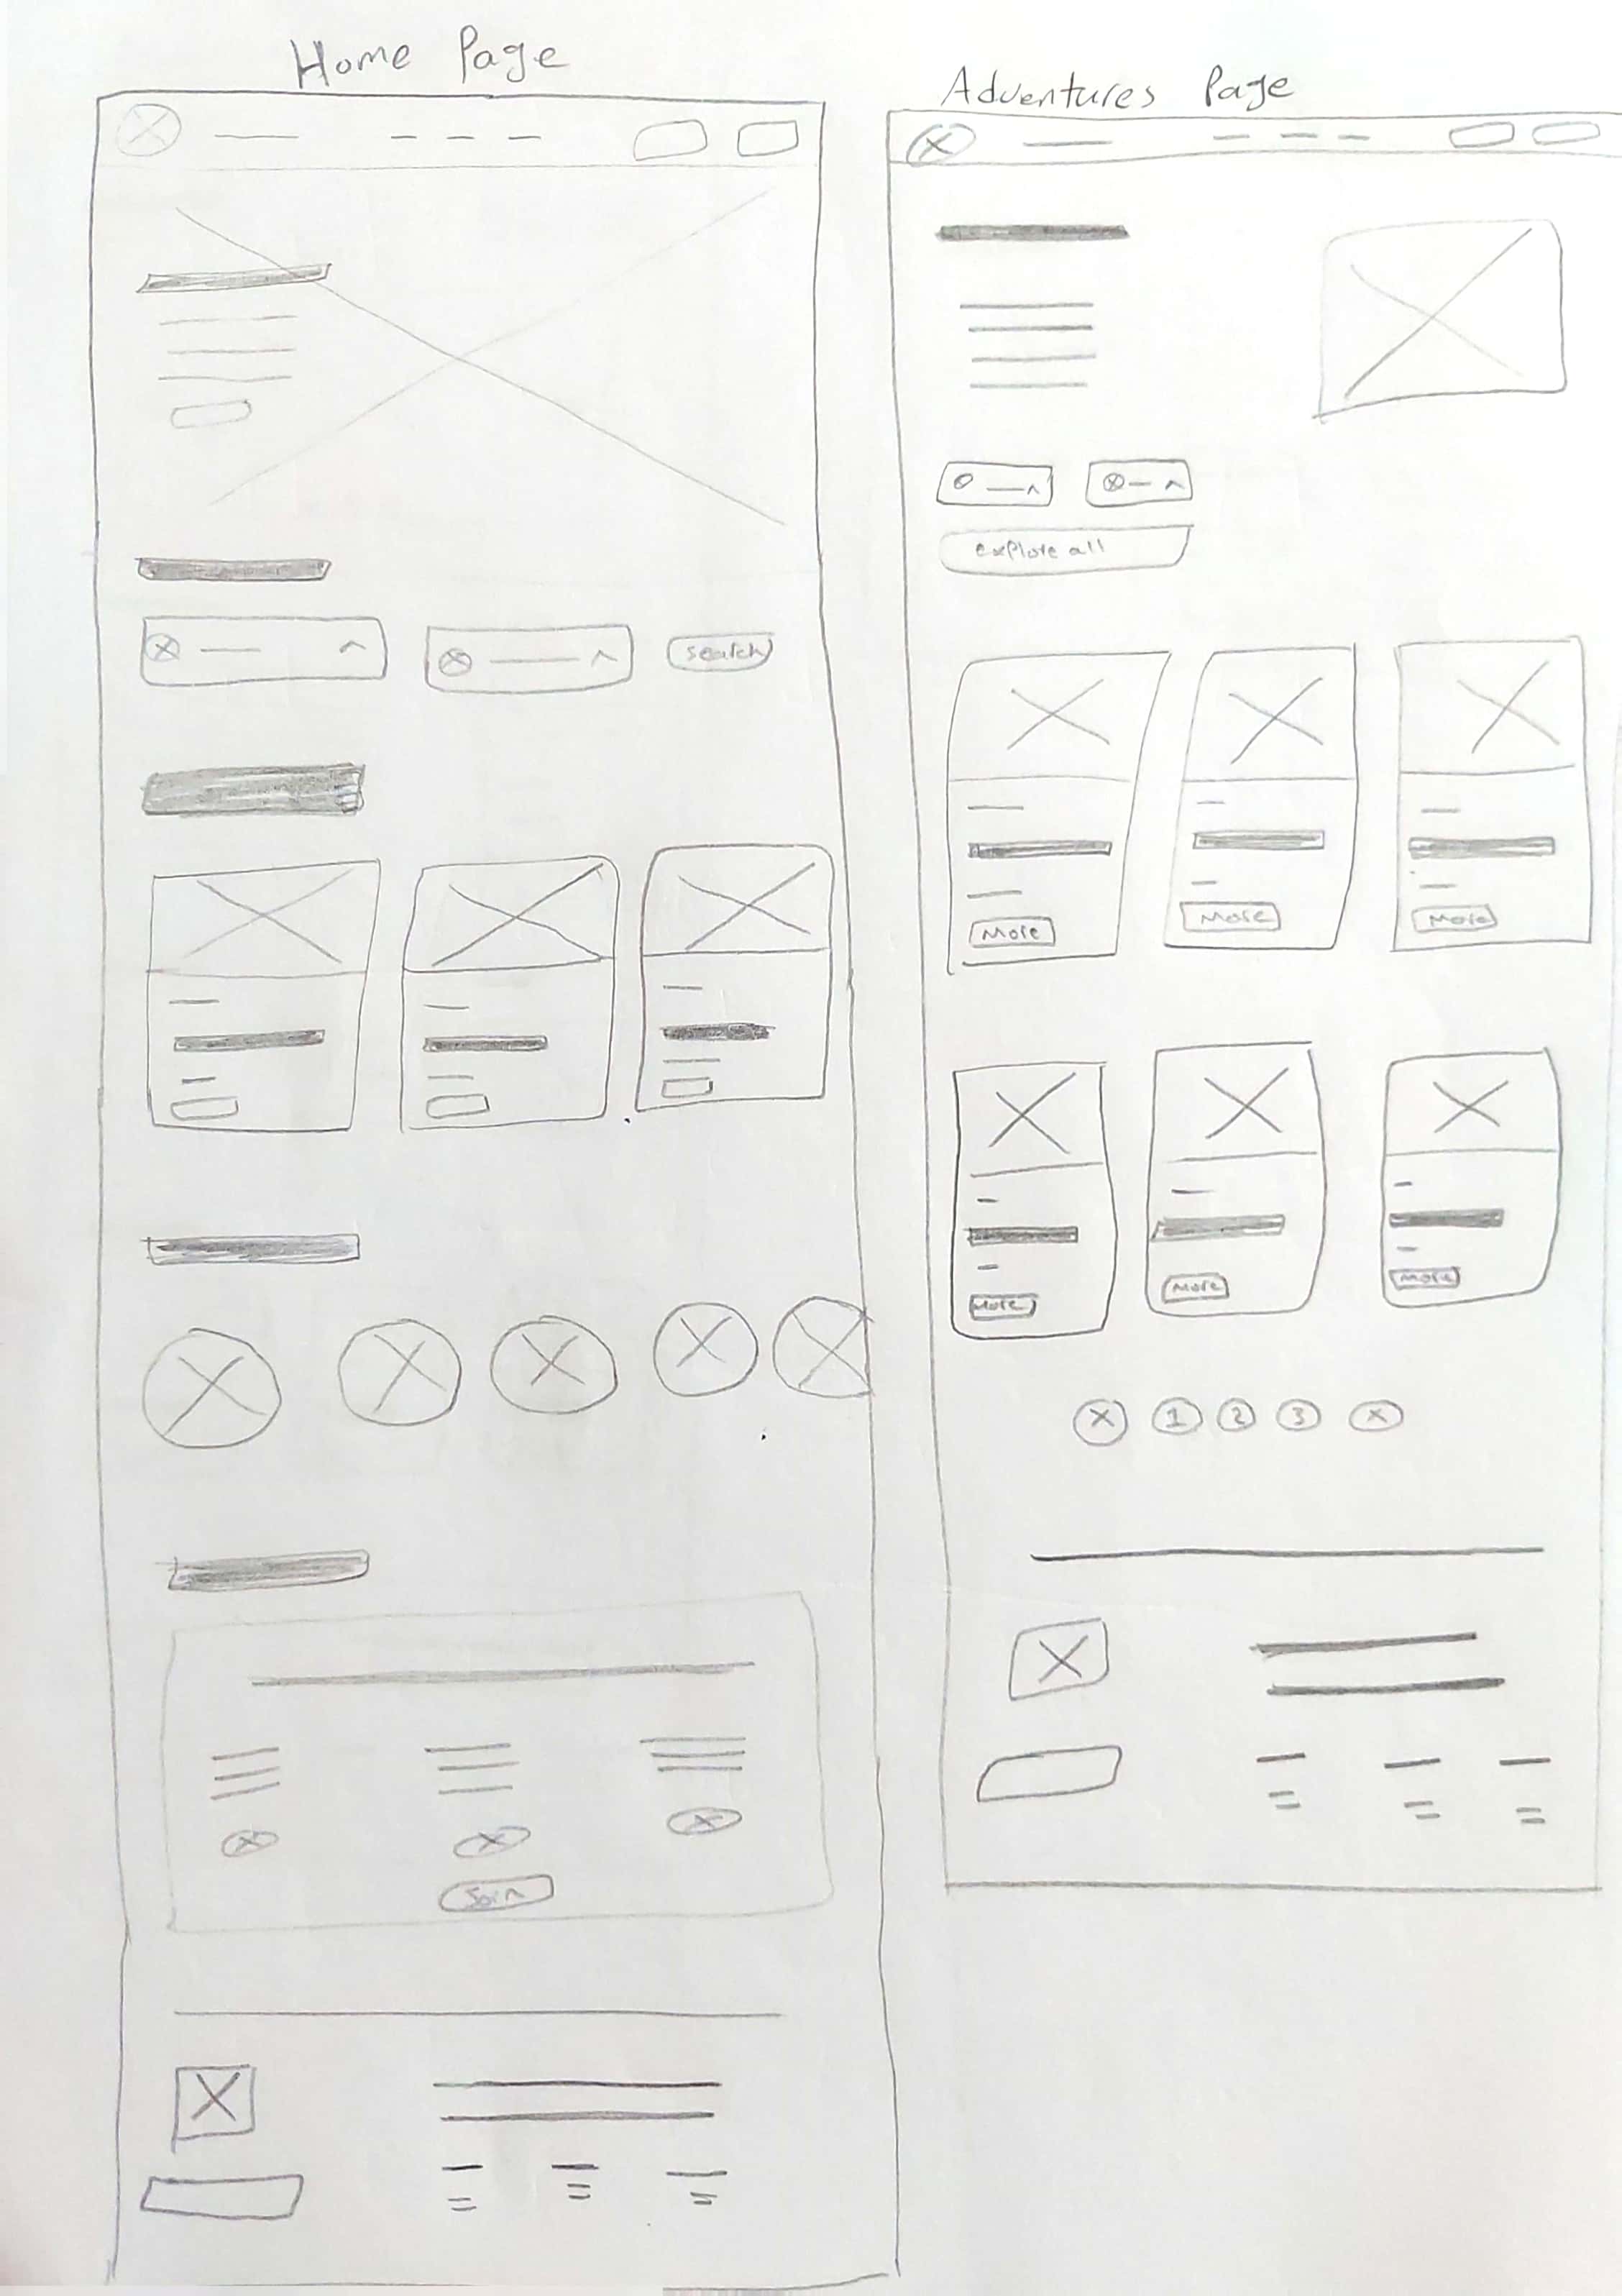 Home Page
search
Join
Adventures Page
explore all
More
More
More
More
More
More
1 2 3